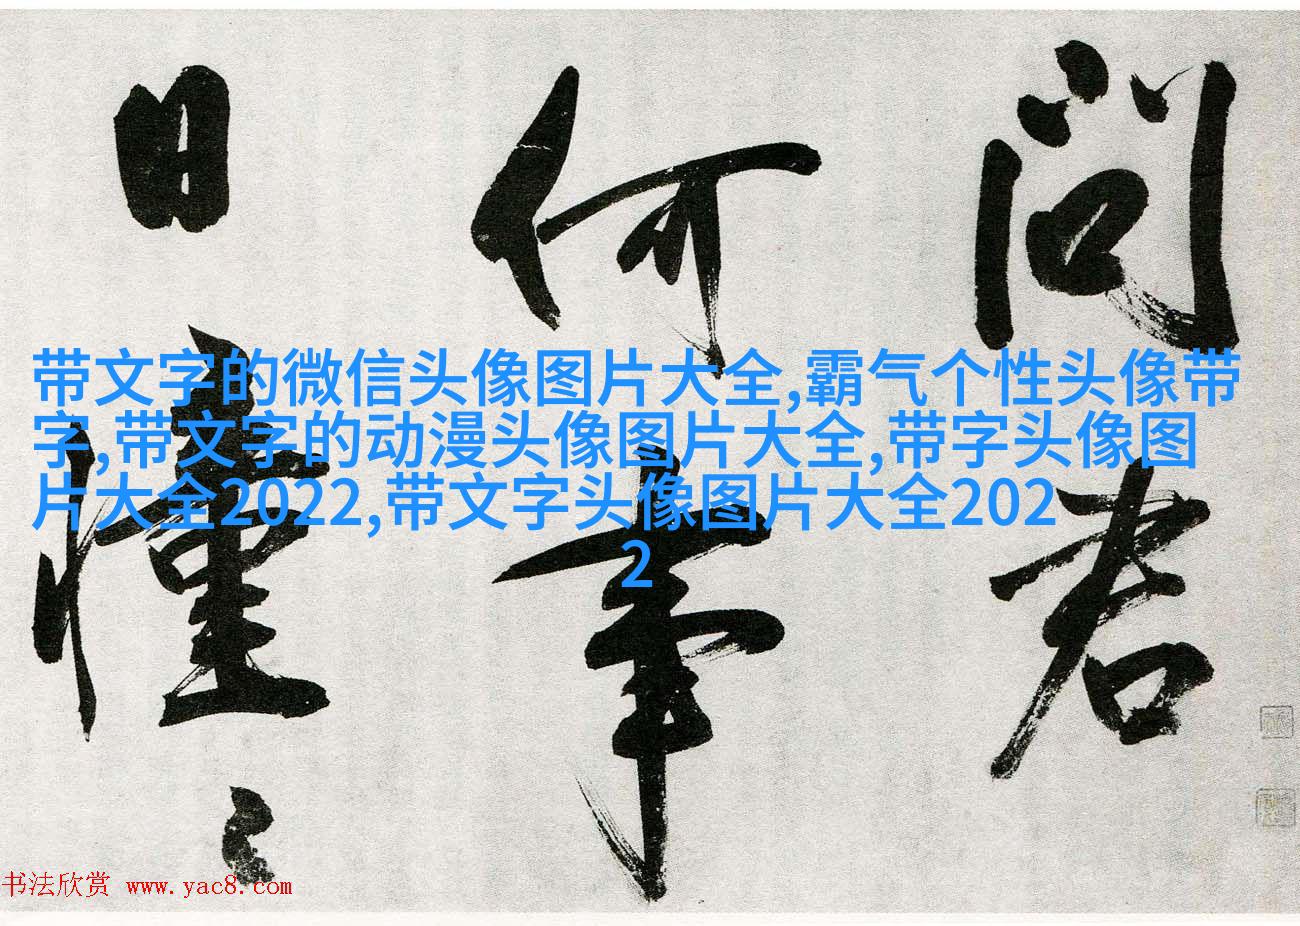 问君
何事
日憧々
带文字的微信头像图片大全,霸气个性头像带
字,带文字的动漫头像图片大全,带字头像图
片大全2022,带文字头像图片大全202
2
书法欣赏 www.yac8.com